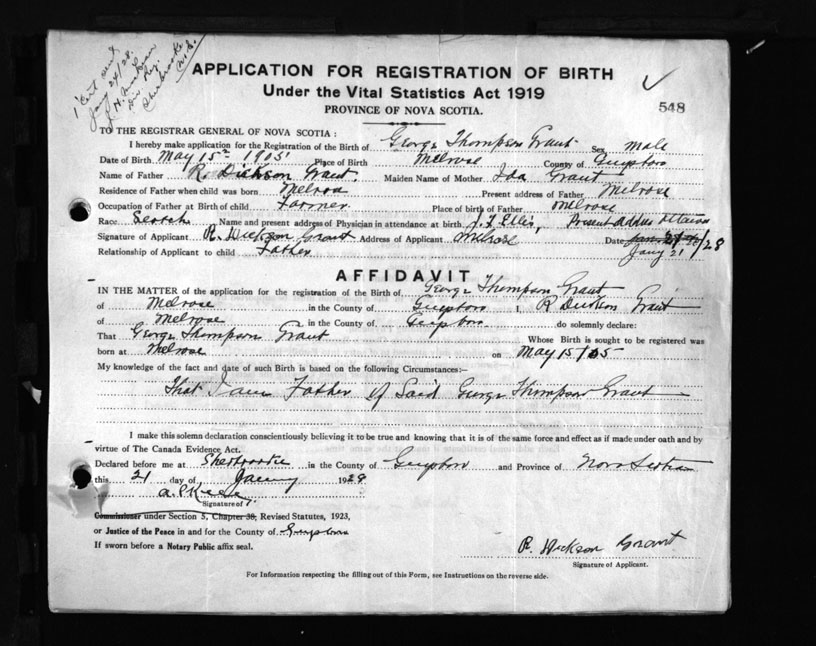 1 Cert sent
Jany 24/28.
Div Reg.
Sherbrooke
N.S.
APPLICATION FOR REGISTRATION OF BIRTH
Under the Vital Statistics Act 1919
PROVINCE OF NOVA SCOTIA.
548
TO THE REGISTRAR GENERAL OF NOVA SCOTIA :
I hereby make application for the Registration of the Birth of George Thompson Grant Sex male
Date of Birth May 15th 1905 Place of Birth Melrose County of Guysboro
Name of Father R. Dickson Grant. Maiden Name of Mother Ida Grant
Residence of Father when child was born Melrose Present address of Father Melrose
Occupation of Father at Birth of child Farmer Place of birth of Father Melrose
Race Scotch Name and present address of Physician in attendance at birth J. F. Ellis, Present address Ottawa
Signature of Applicant R. Dickson Grant Address of Applicant Melrose Date Jany 21/28
Relationship of Applicant to child Father
AFFIDAVIT
IN THE MATTER of the application for the registration of the Birth of George Thompson Grant
of Melrose in the County of Guysboro I, R Dickson Grant
of Melrose in the County of Guysboro do solemnly declare:
That George Thompson Grant Whose Birth is sought to be registered was
born at Melrose on May 15/05
My knowledge of the fact and date of such Birth is based on the following Circumstances:–
That I am Father of Said George Thompson Grant
I make this solemn declaration conscientiously believing it to be true and knowing that it is of the same force and effect as if made under oath and by
virtue of The Canada Evidence Act.
Declared before me at Sherbrooke in the County of Guysboro and Province of Nova Scotia
this 21 day of Jany 1928
Signature of
Commissioner under Section 5, Chapter 38, Revised Statutes, 1923,
or Justice of the Peace in and for the County of Guysboro
If sworn before a Notary Public affix seal.
R. Dickson Grant
Signature of Applicant.
For Information respecting the filling out of this Form, see Instructions on the reverse side.